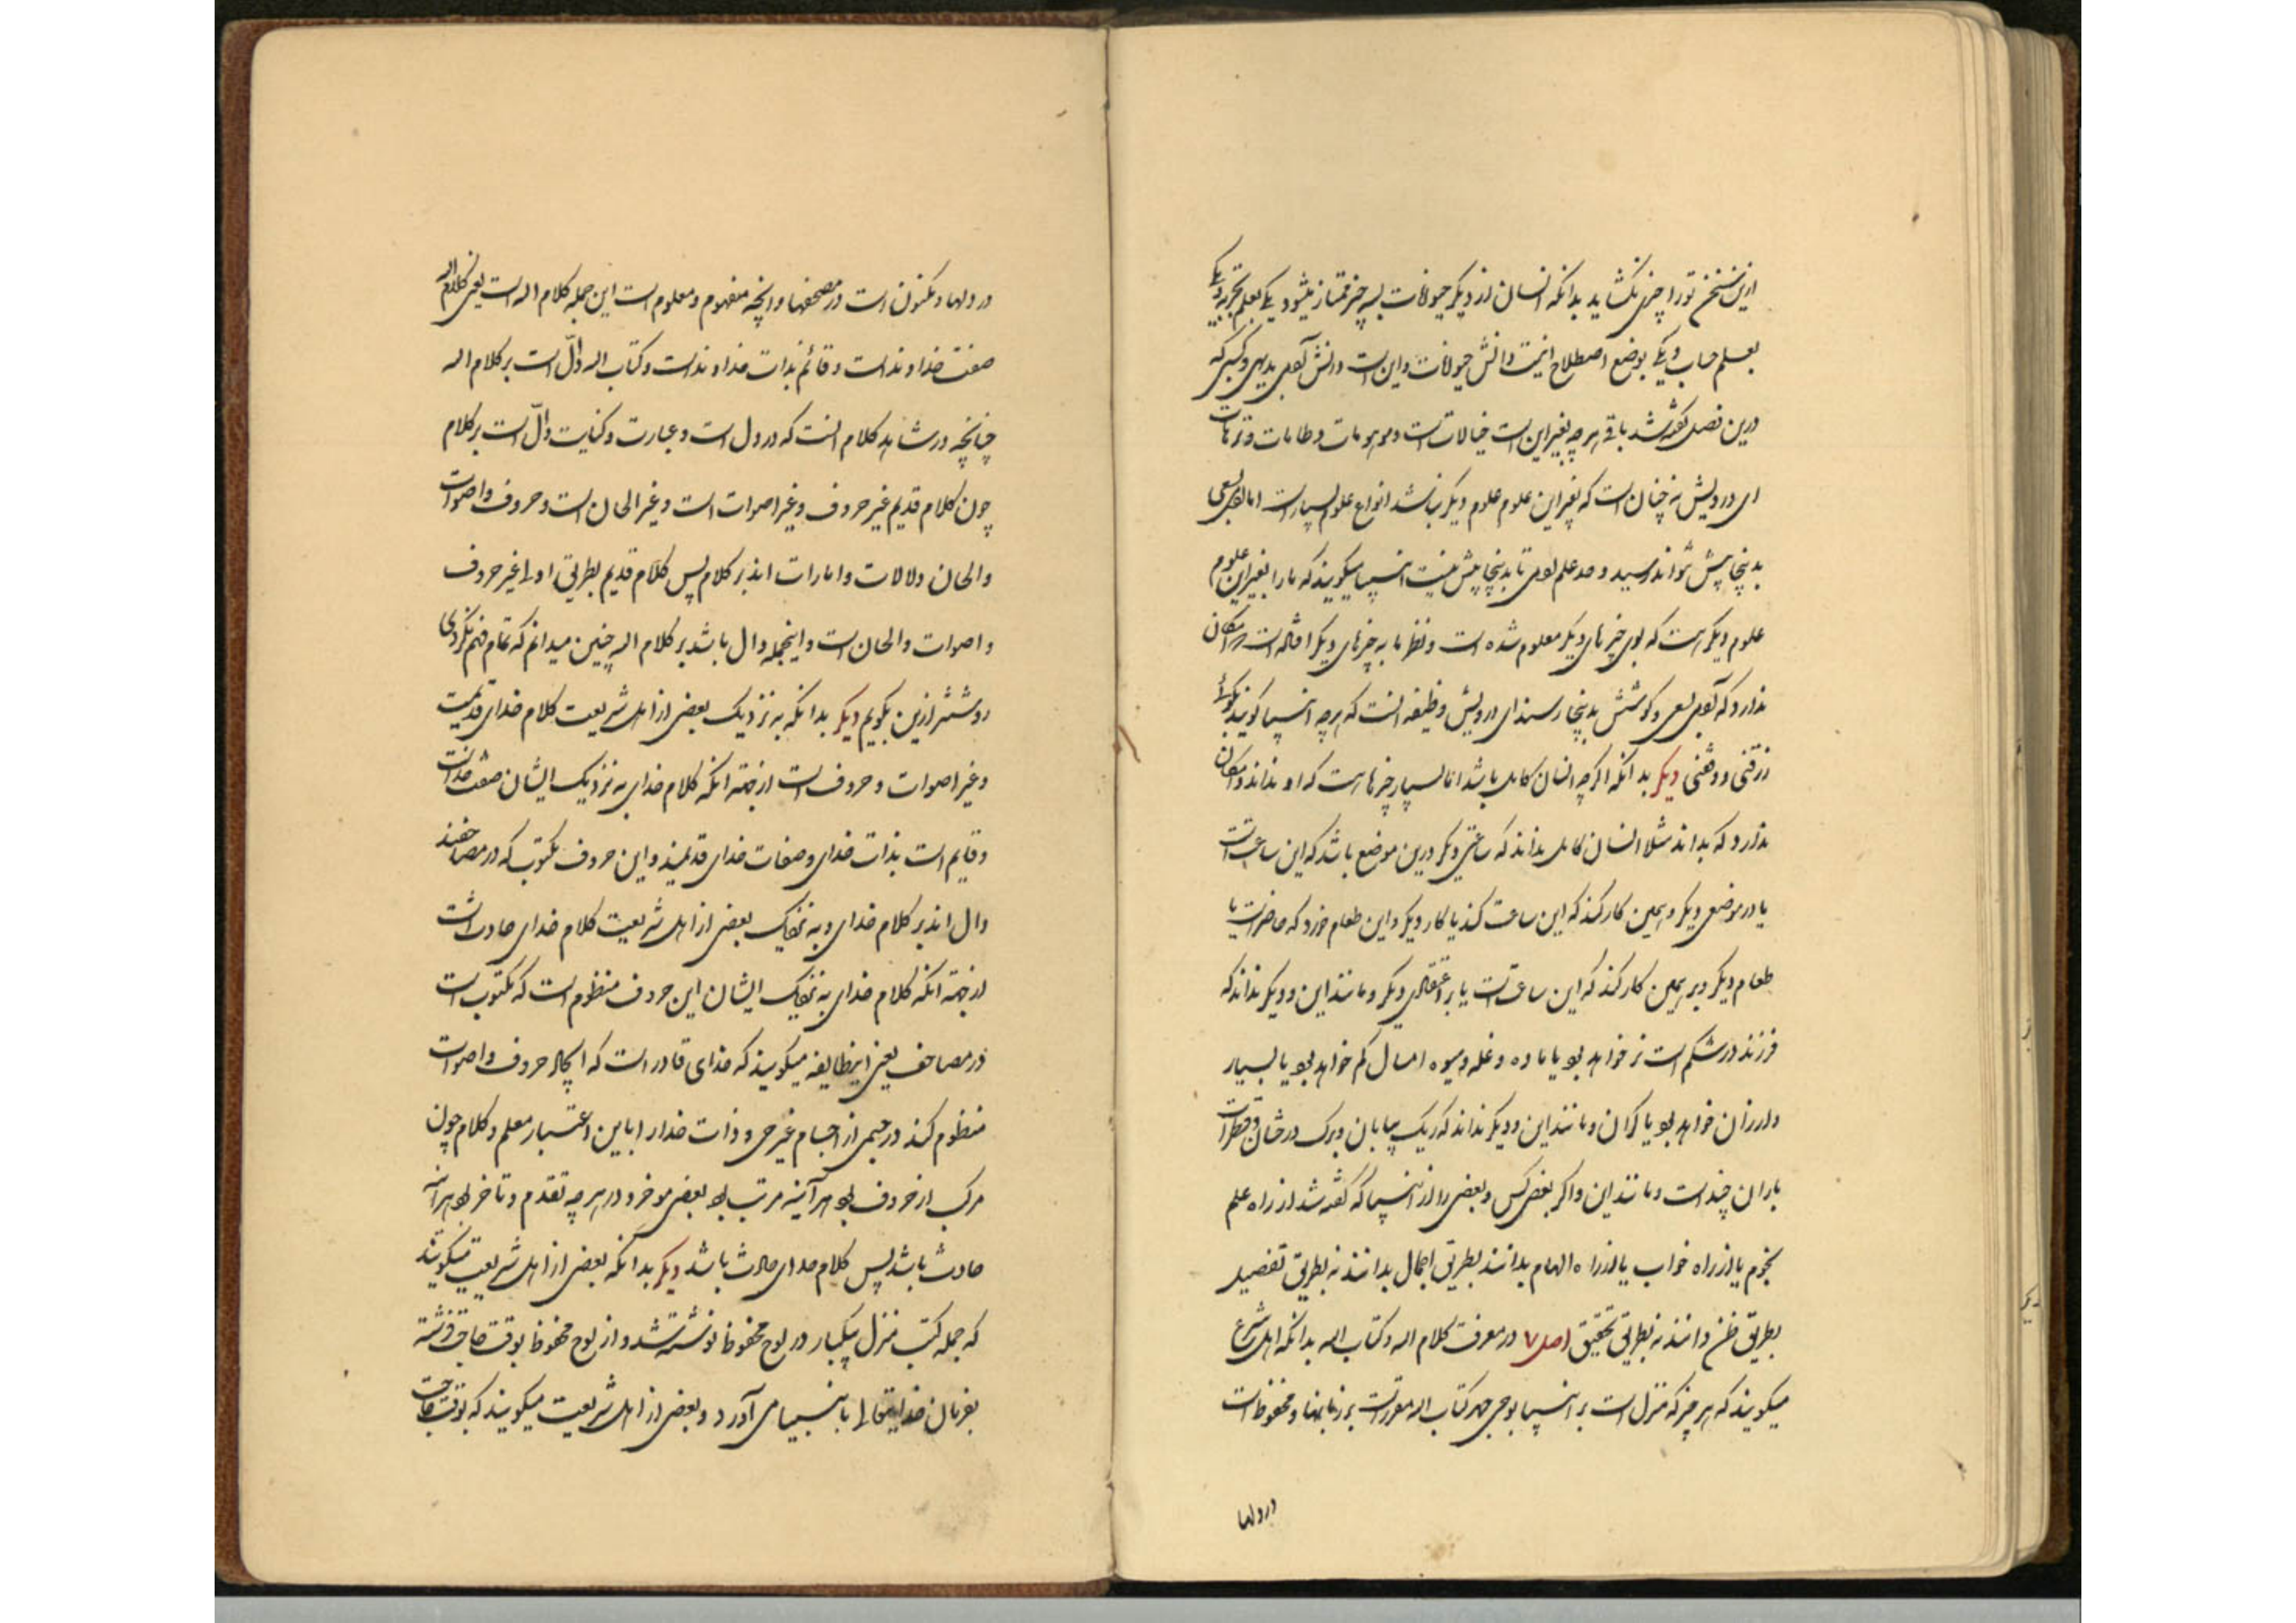 ازین سخن تو را چیزی نگشاید بدانکه انسان از دیکر حیوانات بسه چیز ممتاز میشود یکی بعلم تجربه و یکی
بعلم حساب و یکی بوضع اصطلاح اینست دانش حیوانات و این است دانش آدمی بدیهی و کسبی که
درین فصل گفته شد باقی هر چه بغیر این است خیالات است و موهومات و طامات و ترهات
ای درویش نه چنان است که بغیر این علوم علوم دیکر نباشد انواع علوم بسیار است اما آدمی بسعی
بدینجا بیش نتواند رسید و حد علم آدمی تا بدینجا بیش نیست انبیا میکویند که ما را بغیر این علوم
علوم دیکر است که بوی چیزهای دیکر معلوم شده است و نظر ما به چیزهای دیکر افتاده است و امکان
ندارد که آدمی بسعی و کوشش بدینجا رسد ای درویش وظیفه آنست که هر چه انبیا کویند بکوئی
زرقنی و وفقنی دیکر بدانکه اکرچه انسان کامل باشد اما بسیار چیزها است که او نداند و امکان
ندارد که بداند مثلا انسان کامل نداند که ساعتی دیکر درین موضع باشد که این ساعت است
یا در موضعی دیکر و همین کار کند که این ساعت کند یا کار دیکر و این طعام خورد که حاضر است یا
طعام دیکر و بر همین کار کند که این ساعت است یا بر اعتقادی دیکر و مانند این و دیکر نداند که
فرزند در شکم است نر خواهد بود یا ماده و غله و میوه امسال کم خواهد بود یا بسیار
و ارزان خواهد بود یا کران و مانند این و دیکر نداند که ریک بیابان و برک درختان و قطرات
باران چند است و مانند این و اکر بعضی کس و بعضی را از اینها که گفته شد از راه علم
نجوم یا از راه خواب یا از راه الهام بدانند بطریق اجمال بدانند نه بطریق تفصیل
بطریق ظن دانند نه بطریق تحقیق اصل ۷ در معرفت کلام اله و کتاب اله بدانکه اهل شرع
میکویند که هر چیز که منزل است بر انبیا بوحی جهر کتاب اله مقروست بر زبانها و محفوظ است
در دلها
در دلها و مکتوب است در مصحفها و آنچه مفهوم و معلوم است این جمله کلام اله است یعنی کلام اله
صفت خداوند است و قائم بذات خداوند است و کتاب اله دالّ است بر کلام اله
چنانچه در شاهد کلام آنست که در دل است و عبارت و کتابت دالّ است بر کلام
چون کلام قدیم غیر حروف و غیر اصوات است و غیر الحان است و حروف و اصوات
والحان دلالات و امارات اند بر کلام پس کلام قدیم بطریق اولی غیر حروف
و اصوات و الحان است و اینجمله دال باشد بر کلام اله چنین میدانم که تمام فهم نکردی
روشنتر ازین بکویم دیکر بدانکه به نزدیک بعضی از اهل شریعت کلام خدای قدیمست
و غیر اصوات و حروف است از جهة آنکه کلام خدای به نزدیک ایشان صفت خداست
و قایم است بذات خدای و صفات خدای قدیمند و این حروف مکتوب که در مصاحفند
دال اند بر کلام خدای و به نزدیک بعضی از اهل شریعت کلام خدای حادث است
از جهة آنکه کلام خدای به نزدیک ایشان این حروف منظوم است که مکتوب است
در مصاحف یعنی اینطایفه میکویند که خدای قادر است که ایجاد حروف و اصوات
منظوم کند در جسمی از اجسام غیر حی و ذات خدا را باین اعتبار معلم و کلام چون
مرکب از حروف بود هر آینه مرتب بود بعضی موخر و در هر چه تقدم و تاخر بود هر آینه
حادث باشد پس کلام خدای حادث باشد دیکر بدانکه بعضی از اهل شریعت میکویند
که جمله کتب منزل بیکبار در لوح محفوظ نوشته شد و از لوح محفوظ بوقت حاجت فرشته
بفرمان خدایتعالی با انبیا می آورد و بعضی از اهل شریعت میکویند که بوقت حاجت